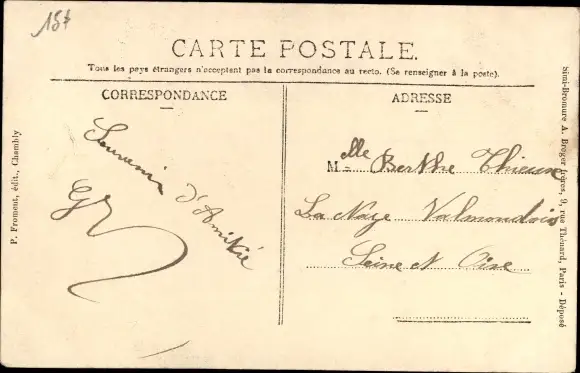 157
CARTE POSTALE.
Tous les pays étrangers n'acceptent pas la correspondance au recto. (Se renseigner à la poste).
CORRESPONDANCE
Souvenir
d'Amitié
ADRESSE
Melle Berthe
La Naze Valmondois
Seine et Oise
P. Froment, édit., Chambly
Simi-Bromure A. Breger frères, 9, rue Thénard, Paris - Déposé